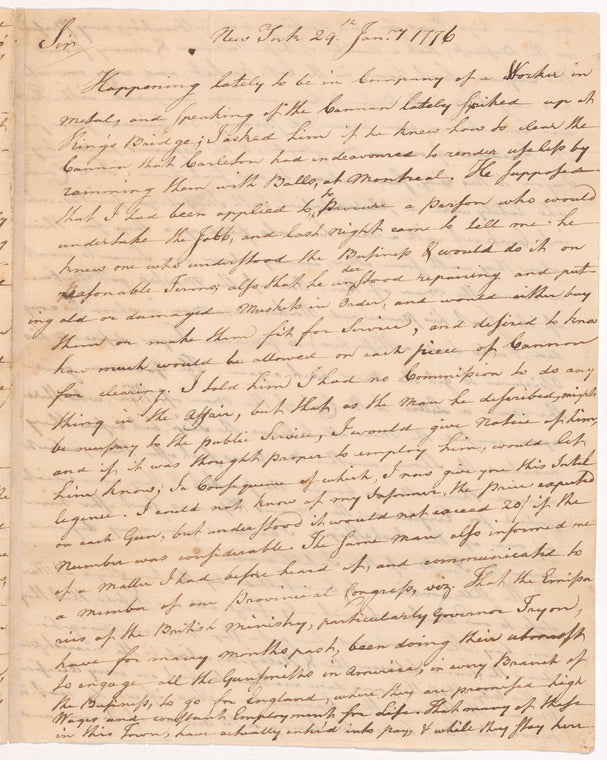 New York 29th Jany 1776
Sir
Happening lately to be in Company of a Worker in
metal, and speaking of the Cannan lately spiked up at
King's Bridge; I asked him if he knew how to clear the
Cannon that Carleton had endeavoured to render useless by
ramming them with Balls, at Montreal. He supposed
that I had been applied to, to Procure a person who would
undertake the Jobb, and last night came to tell me he
knew one who understood the Business & would do it on
reasonable Terms; also that he understood repairing and put-
ing old or damaged Muskets in Order, and would either buy
them or make them fit for Service, and desired to know
how much would be allowed on each piece of Cannon
for clearing. I told him I had no Commission to do any
thing in the Affair, but that, as the Man he described, might
be necessary to the public Service, I would give Notice of him,
and if, it was thought proper to employ him, would let
him know; In Consequence of which, I now give you this Intel
legence. I could not know of my Informer, the Price expected
on each Gun, but understood it would not exceed 20/ if the
Number was considerable. The same man also informed me
of a matter I had before heard of, and communicated to
a member of our Provincial Congress, viz. That the Emissa
ries of the British Ministry, particularly Governor Tryon,
have for many Months past, been doing their utmost
to engage all the Gunsmiths in America, in every Branch of
the Business, to go for England, where they are promised high
Wages and constant Employment for Life. That many of these
in this Town, have actually enter'd into pay, & while they stay here